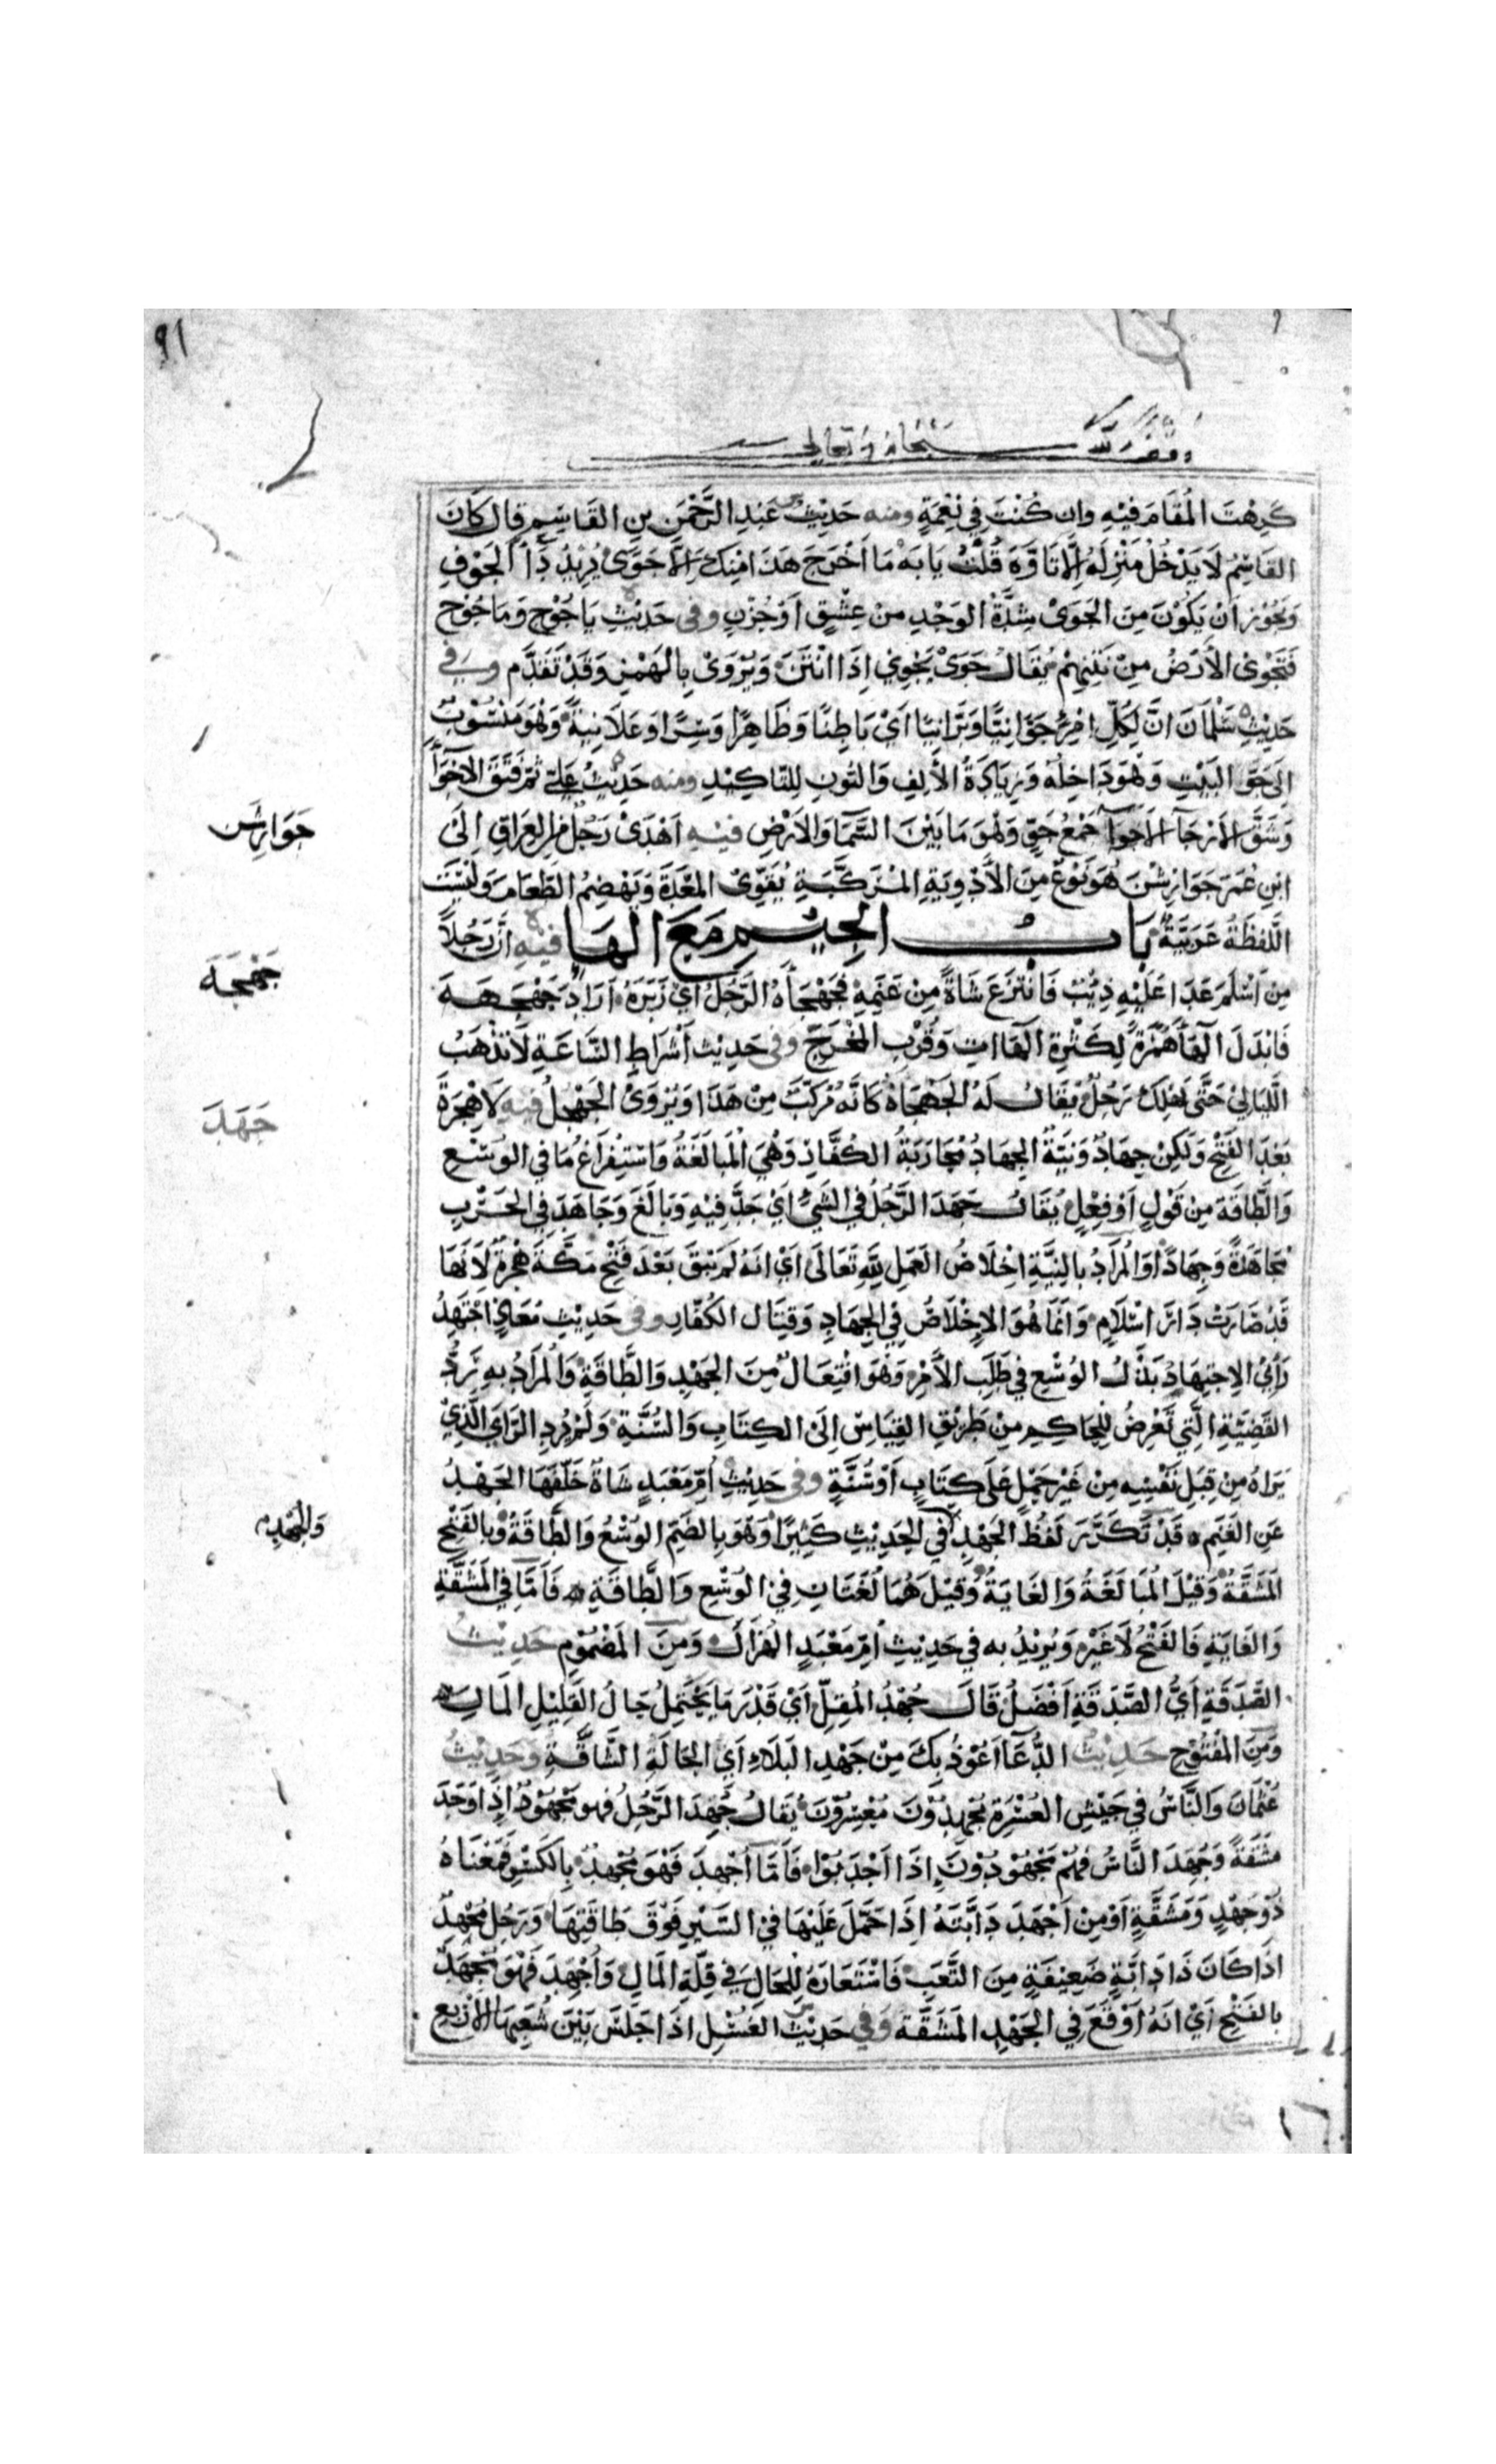 ٩١
وقف لله سبحانه وتعالى
كَرِهْتَ المُقَامَ فِيْهِ وان كُنْتَ فِي نِعْمَةٍ ومنه حَدِيْثُ عَبْدِ الرَّحْمَنِ بنِ القَاسِمِ قال كَانَ
القَاسِمُ لَا يَدْخُلُ مَنْزِلَهُ اِلَّا تَاَوَّهَ قُلْتُ يَا بَهْ مَا اَخْرَجَ هَذَا مِنْكَ اِلَّا جَوَى يُرِيْدُ دَآ الجَوْفِ
وَيَجُوْزُ اَنْ يَكُوْنَ مِنَ الجَوَى شِدَّةُ الوَجْدِ مِنْ عِشْقٍ اَوْ حُزْنٍ وفى حَدِيْثِ يَاجُوْجَ وَمَاجُوْجَ
فَتَجْوَى الأَرْضُ مِنْ نَتْنِهِمْ يُقَالُ جَوَى يَجْوِي اِذَا انْتَنَ وَيُرْوَىْ بِالهَمْزِ وَقَدْ تَقَدَّم وفى
حَدِيْثِ سَلْمَانَ انَّ لِكُلِّ امْرِئٍ جَوَّانِيًّا وَبَرَّانِيًّا اَيْ بَاطِنًا وَظَاهِرًا وَسِرًّا وَعَلَانِيَةً وَهُوَ مَنْسُوْبٌ
اِلَى جَوِّ البَيْتِ وَهُوَ دَاخِلُهُ وَزِيَادَةُ الأَلِفِ وَالنُّونِ لِلتَّاكِيْدِ ومنه حَدِيْثُ عَلِيّ ثُمَّ فَتَقَ الاَجْوَآ
وَشَقَّ الاَرْجَآ الاَجْوَآ جَمْعُ جَوٍّ وَهُوَ مَا بَيْنَ السَّمَا وَالاَرْضِ فيه اَهْدَىْ رَجُلٌ مِنَ العِرَاقِ اِلَىْ
ابْنِ عُمَرَ جَوَارِشْنَ هُوَ نَوْعٌ مِنَ الأَدْوِيَةِ المُرَكَّبَةِ يُقَوِّىْ المَعْدَةَ وَيَهْضِمُ الطَّعَامَ وَلَيْسَتْ
اللَّفْظَةُ عَرَبِيَّةً بَابُ الجِيْمِ مَعَ الهَا فِيْهِ اَنَّ رَجُلاً
مِنْ اَسْلَمَ عَدَا عَلَيْهِ ذِيْبٌ فَانْتَزَعَ شَاةً مِنْ غَنَمِهِ فَجَهْجَأَهُ الرَّجُلُ اَيْ زَبَرَهُ اَرَادَ جَهْجَهَهُ
فَابْدَلَ الهَآ هَمْزَةً لِكَثْرَةِ الهَاآتِ وَقُرْبِ المَخْرَجِ وفى حَدِيْث اَشْرَاطِ السَّاعَةِ لَا تَذْهَبُ
اللَّيَالِيْ حَتَّى يَمْلِكَ رَجُلٌ يُقَالُ لَهُ الجَهْجَاهُ كَانَّهُ مُرَكَّبٌ مِنْ هَذَا وَيُرْوَىْ الجَهْجَلُ فيه لَا هِجْرَةَ
بَعْدَ الفَتْحِ وَلَكِنْ جِهَادٌ وَنِيَّةٌ الجِهَادُ مُحَارَبَةُ الكُفَّارِ وَهُيَ المُبَالَغَةُ وَاسْتِفْرَاغُ مَا فِي الوُسْعِ
وَالطَّاقَةِ مِنْ قَوْلٍ اَوْ فِعْلٍ يُقَالُ جَهَدَ الرَّجُلُ فِي الشَيْءِ اَيْ جَدَّ فِيْهِ وَبَالَغَ وَجَاهَدَ فِي الحَرْبِ
مُجَاهَدَةً وَجِهَادًا وَالمُرَادُ بِالنِيَّةِ اخْلَاصُ العَمَلِ لِلّهِ تَعَالَى اَيْ انَهُ لَمْ يَبْقَ بَعْدَ فَتْحِ مَكَّةَ هِجْرَةٌ لِاَنَهَا
قَدْ صَارَتْ دَارَ اسْلَامٍ وَانَّمَا هُوَ الاِخْلَاصُ فِي الجِهَادِ وَقِتَالِ الكُفَّارِ وفى حَدِيْثِ مُعَاذٍ اَجْتَهِدُ
رَأْيِيْ الاِجْتِهَادُ بَذْلُ الوُسْعِ فِي طَلَبِ الأَمْرِ وَهُوَ افْتِعَالٌ مِنَ الجَهْدِ وَالطَّاقَةِ وَالمُرَادُ بهِ رَدُّ
القَضِيَّةِ الَّتِي تَعْرِضُ لِلحَاكِمِ مِنْ طَرِيْقِ القِيَاسِ اِلَىْ الكِتَابِ وَالسُّنَّةِ وَلَمْ يُرِدِ الرَّايَ الَّذِيْ
يَرَاهُ مِنْ قِبَلِ نَفْسِهِ مِنْ غَيْرِ حَمْلٍ عَلَى كِتَابٍ اَوْ سُنَّةٍ وفى حَدِيْثِ اُمِّ مَعْبَدٍ شَاةٌ خَلَّفَهَا الجَهْدُ
عَنِ الغَنَمِ ه قَدْ تَكَرَّرَ لَفْظُ الجَهْدِ فِي الحَدِيْثِ كَثِيْرًا وَهُوَ بِالضَمِّ الوُسْعُ وَالطَّاقَةُ وَبِالفَتْحِ
المَشَقَّةُ وَقِيْلَ المُبَالَغَةُ وَالغَايَةُ وَقِيْلَ هُمَا لُغَتَانِ فِيْ الوُسْعِ وَالطَّاقَةِ ه فَاَمَّا فِي المَشَقَّةِ
وَالغَايَةِ فَالفَتْحُ لَا غَيْرُ وَيُرِيْدُ به فِي حَدِيْثِ اُمِّ مَعْبَدٍ الهُزَالَ وَمِنَ المَضْمُوْمِ حَدِيْثُ
الصَّدَقَةِ اَيُّ الصَّدَقَةِ اَفْضَلُ قَالَ جُهْدُ المُقِلِّ اَيْ قَدْرَ مَا يَحْتَمِلُ حَالُ القَلِيْلِ المَالِ ه
وَمِنَ المَفْتُوْحِ حَدِيْثُ الدُّعَآ اَعُوْذُ بِكَ مِنْ جَهْدِ البَلَاءِ اَيِ الحَالَةِ الشَّاقَّةِ وَحَدِيْثُ
عُثْمَانَ وَالنَّاسُ فِي جَيْشِ العُسْرَةِ مُجْهِدُوْنَ مُعْسِرُوْنَ يُقَالُ جُهِدَ الرَّجُلُ فهو مَجْهُوْدٌ اِذَا وَجَدَ
مَشَقَّةً وَجُهِدَ النَّاسُ فَهُمْ مَجْهُوْدُوْنَ اِذَا اَجْدَبُوْا فَاَمَّا اَجْهَدَ فَهُوَ مُجْهِدٌ بِالكَسْرِ فَمَعْنَاهُ
ذُوْ جَهْدٍ وَمَشَقَّةٍ اَوْ مِنْ اَجْهَدَ دَابَّتَهُ اِذَا حَمَّلَ عَلَيْهَا فِيْ السَّيْرِ فَوْقَ طَاقَتِهَا وَرَجُلٌ مُجْهِدٌ
اذَا كَانَ ذَا دَابَّةٍ ضَعِيْفَةٍ مِنَ التَّعَبِ فَاسْتَعَارَهُ لِلْحَالِ فِي قِلَّةِ المَالِ وَاُجْهِدَ فَهُوَ مُجْهَدٌ
بالفَتْحِ اَيْ انَهُ اُوْقِعَ فِي الجَهْدِ المَشَقَّةِ وَفِي حَدِيْثِ الغُسْلِ اذَا جَلَسَ بَيْنَ شُعَبِهَا الاَرْبَعِ
جَوَارِشن
جَهْجَهَ
جَهَدَ
وَالجُهْدِ